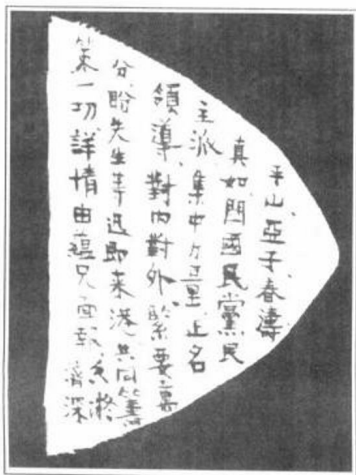 平山、亞子、春濤、
真如閱國民黨民
主派、集中力量、正名
領導、對內對外、緊要萬
分、盼先生等迅即来港共同籌
策一切、詳情由蘊兄面報、香凝
濟深